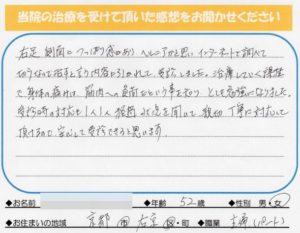 当院の治療を受けて頂いた感想をお聞かせください
右足側面につっぱり感があり ヘルニアかと思い インターネットで調べて
切らなくて治すと言う内容にひかれて、受診しました。治療していく課程
で身体の痛みは、脳内への負荷だという事を知り とても勉強になりました。
受診時の対応も1人1人 を聞いて 親切 丁寧に対応して
頂けるので 安心して受診できると思います。
◆お名前 ◆年齢 52歳 ◆性別 男・女
◆お住まいの地域 京都 市 右京 区・町 ◆職業 主婦(パート)